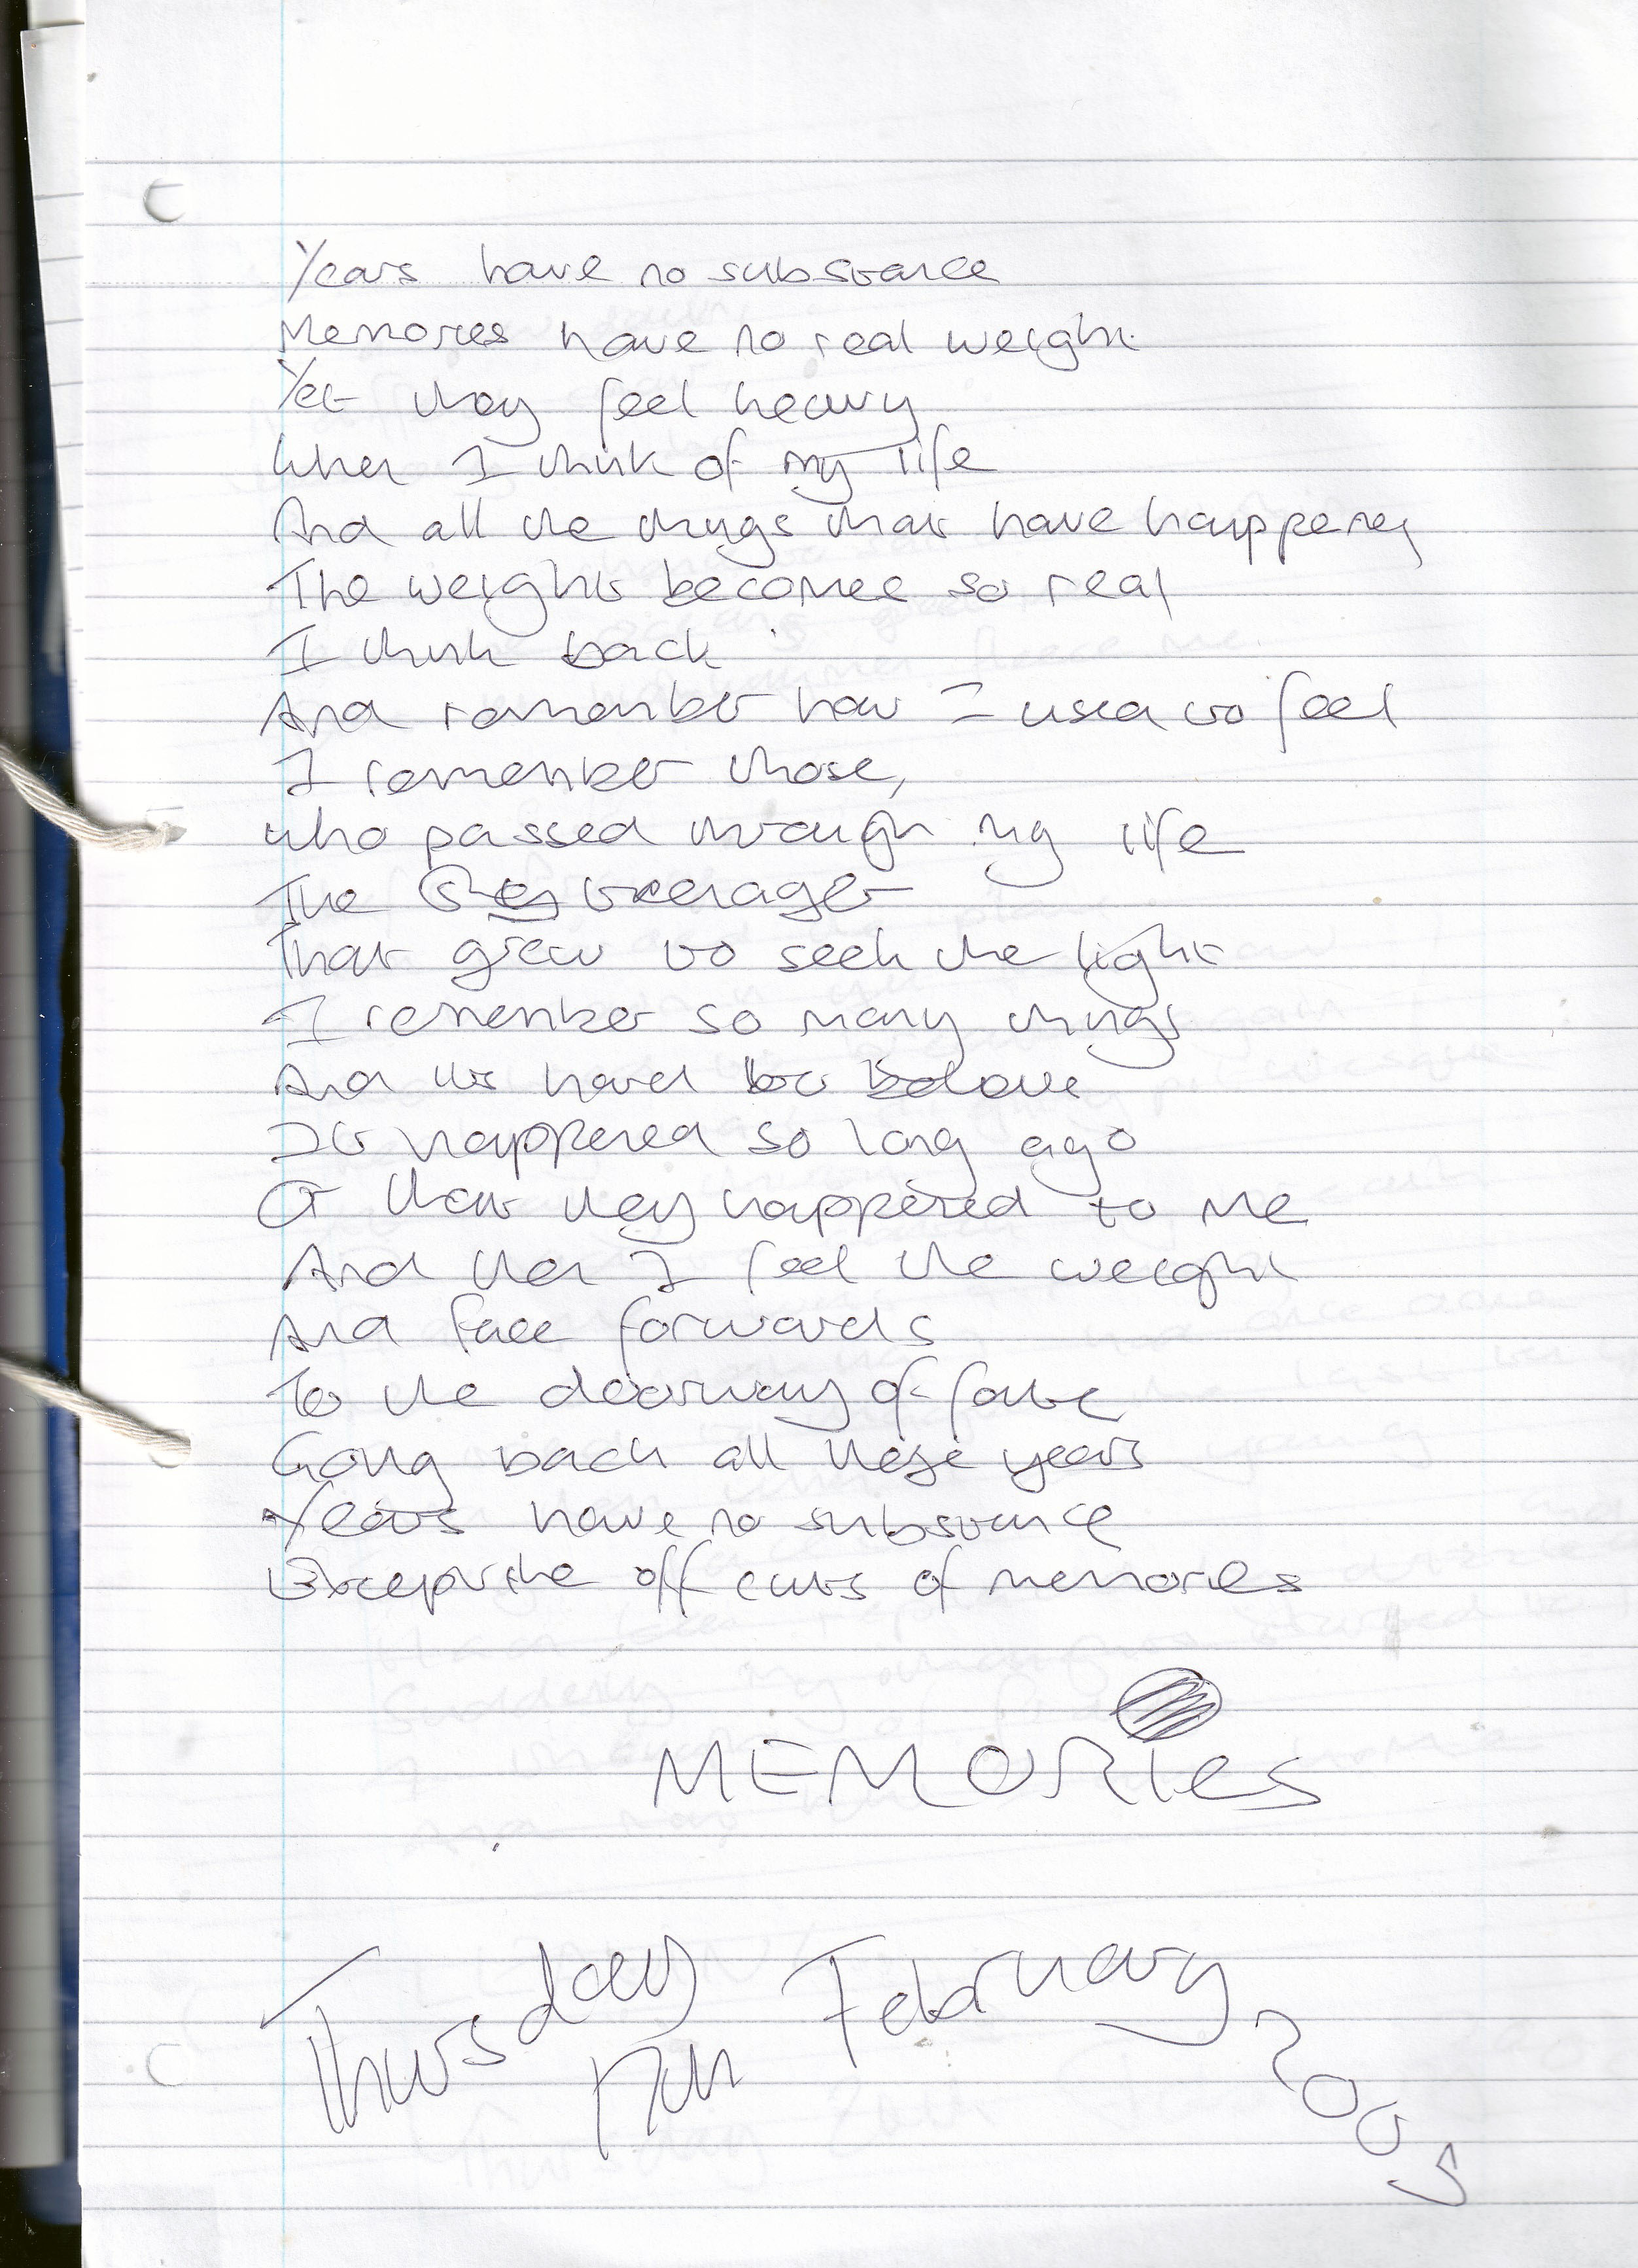 Years have no substance
Memories have no real weight
Yet they feel heavy
When I think of my life
And all the things that have happened
The weight becomes so real
I think back
And remember how I used to feel
I remember those,
who passed through my life
The teenager
That grew to seek the light
I remember so many things
And its hard to believe
It happened so long ago
Or that they happened to me
And then I feel the weight
And face forwards
To the doorway of fate
Going back all these years
Years have no substance
Except the off cuts of memories
MEMORies
Thursday 17th February 2005